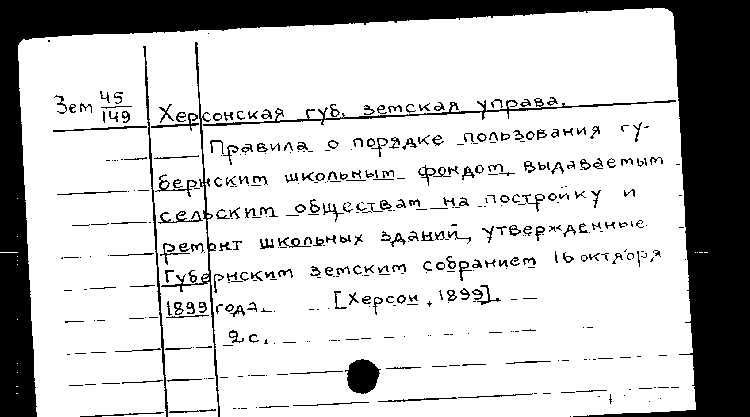 Зем 45/149
Херсонская губ. земская управа.
Правила о порядке пользования гу-
бернским школьным фондом, выдаваемым
сельским обществам на постройку и
ремонт школьных зданий, утвержденные
Губернским земским собранием 16 октября
1899 года. [Херсон, 1899].
2 с.